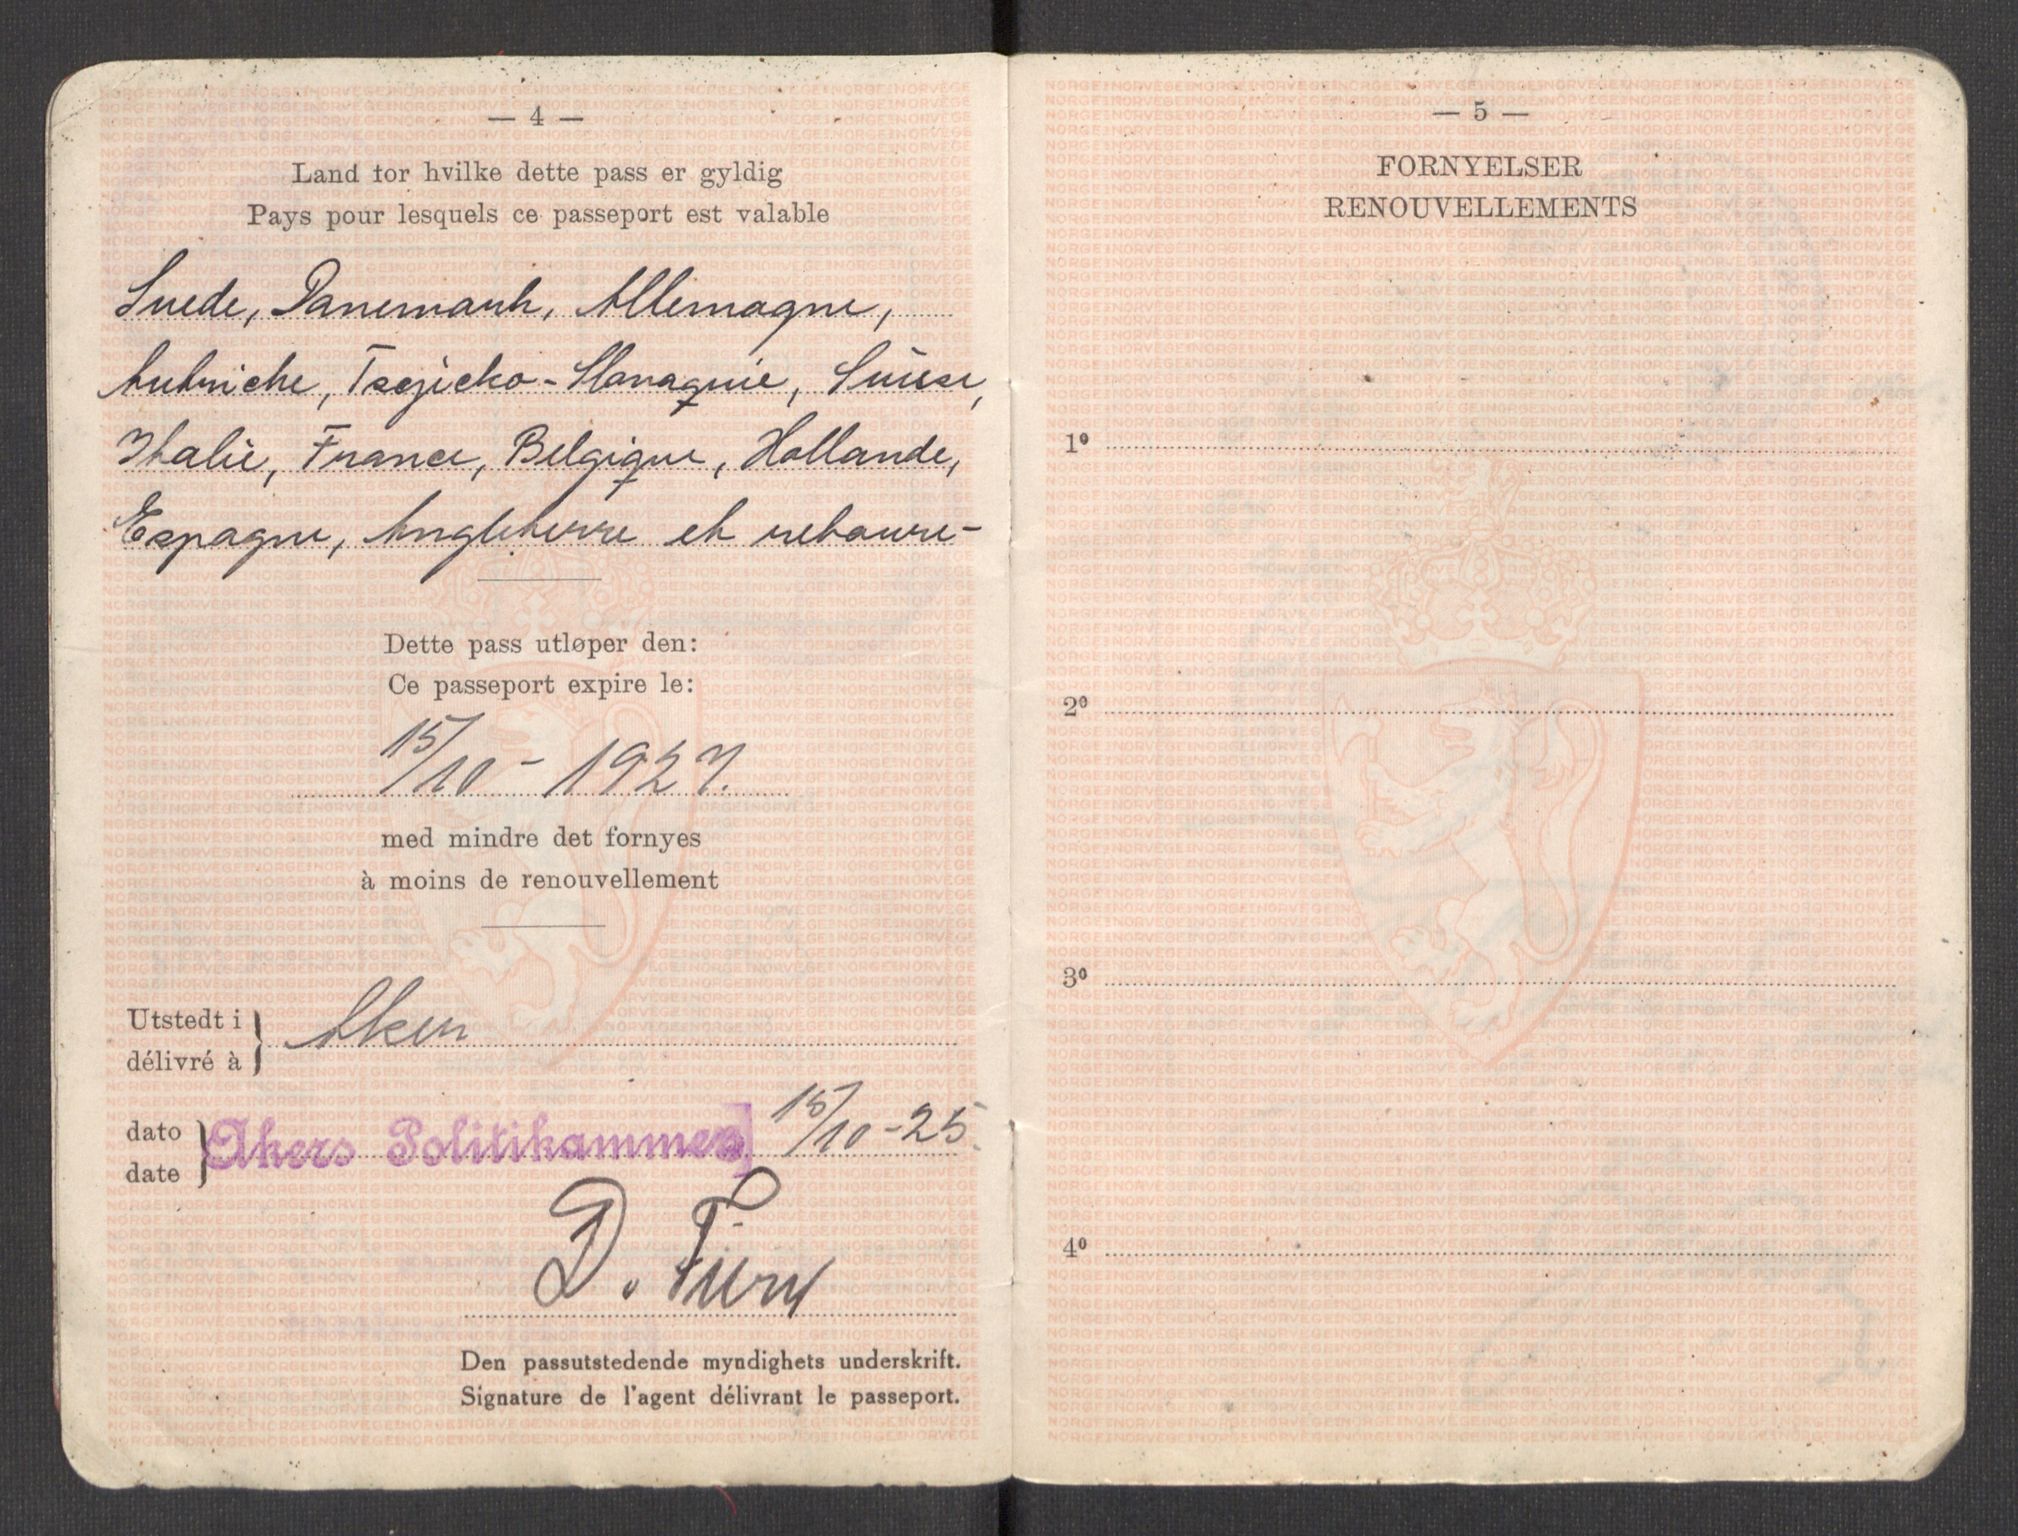 — 4 —
Land for hvilke dette pass er gyldig
Pays pour lesquels ce passeport est valable
Suede, Danemark, Allemagne,
Autriche, Tsejicko-Slovaquie, Suisse,
Italie, France, Belgique, Hollande,
Espagne, Angleterre et retour-
Dette pass utløper den:
Ce passeport expire le:
15/10 - 1927.
med mindre det fornyes
à moins de renouvellement
Utstedt i
délivré à
Aker
dato
date
Akers Politikammer 15/10-25.
D.
Den passutstedende myndighets underskrift.
Signature de l'agent délivrant le passeport.
— 5 —
FORNYELSER
RENOUVELLEMENTS
1º
2º
3º
4º